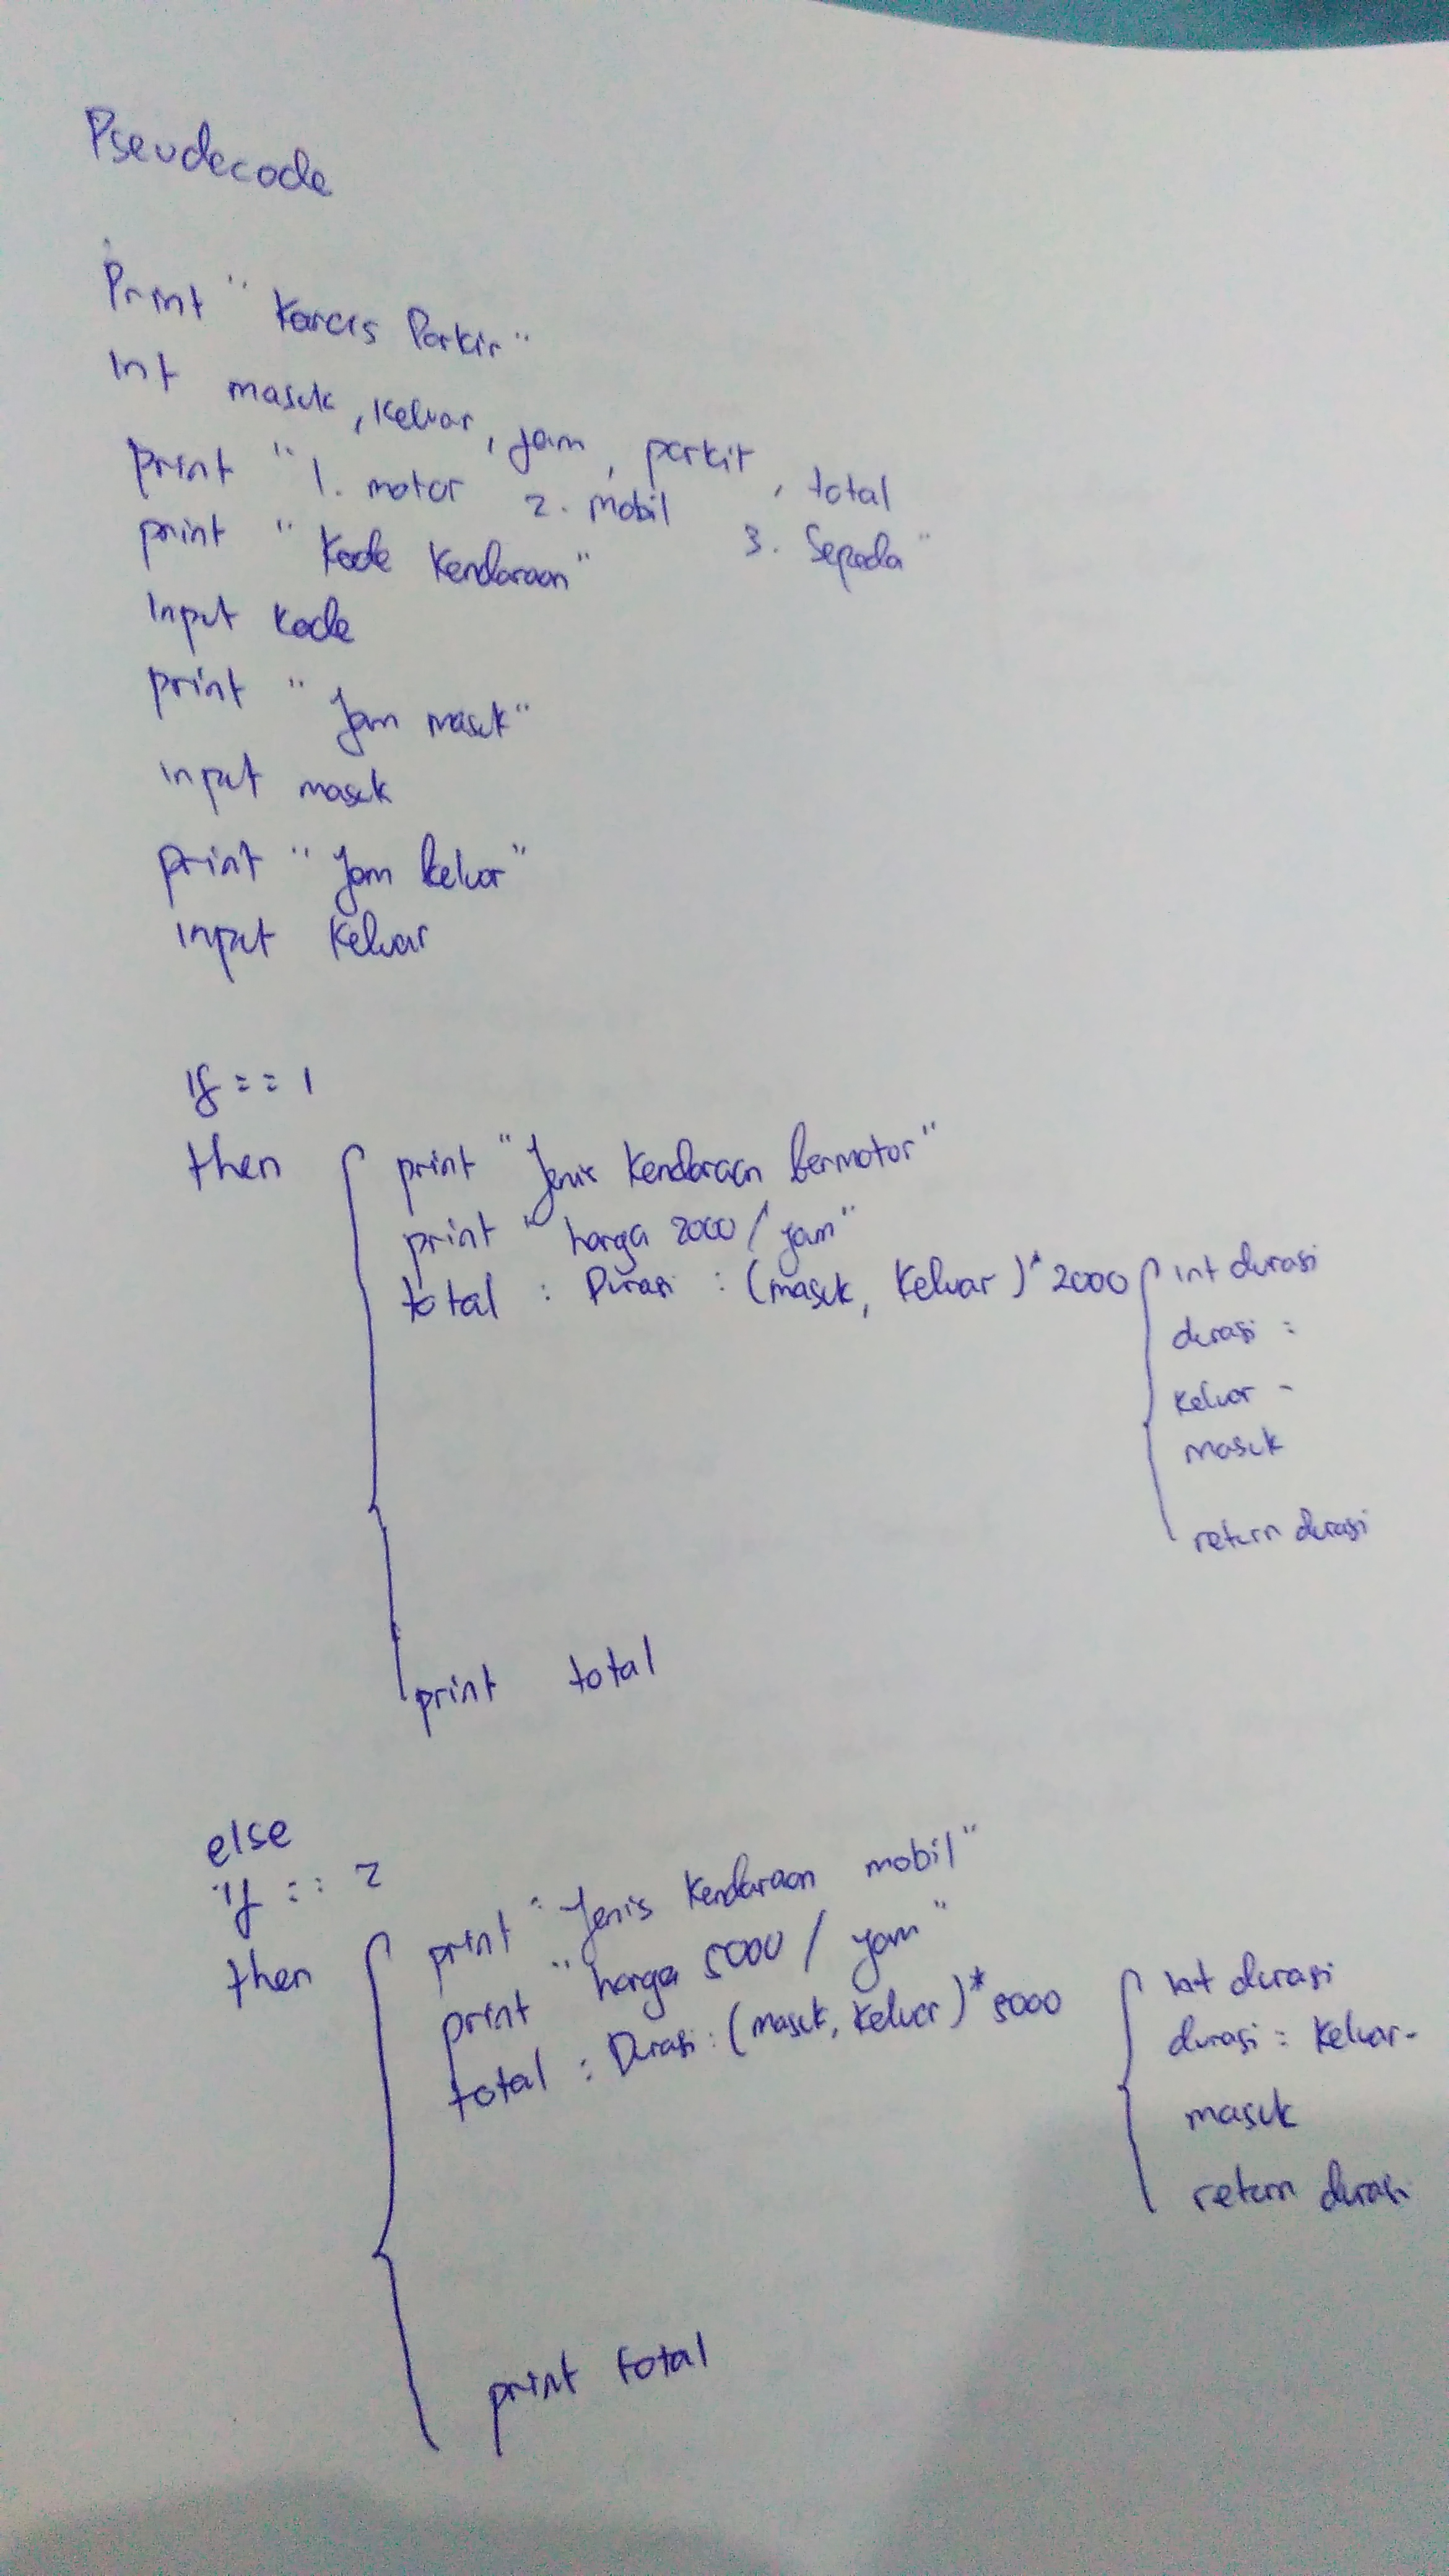 Pseudecode
Print " Karcis Parkir "
Int masuk, keluar, jam, parkir, total
print " 1. motor 2. mobil 3. Sepeda "
print " Kode Kendaraan "
Input kode
print " Jam masuk "
input masuk
print " Jam keluar "
input keluar
If == 1
then
print " Jenis Kendaraan bermotor "
print " harga 2000 / jam "
total : Durasi : (masuk, keluar) * 2000
int durasi
durasi :
keluar -
masuk
return durasi
print total
else
if == 2
then
print " Jenis Kendaraan mobil "
print " harga 5000 / jam "
total : Durasi : (masuk, keluar) * 5000
int durasi
durasi : keluar -
masuk
return durasi
print total